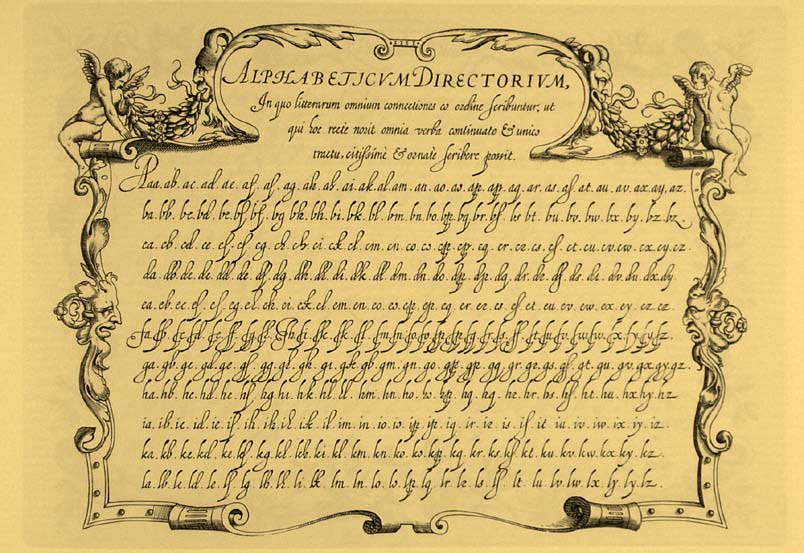 ALPHABETICVM DIRECTORIVM,
In quo litterarum omnium connectiones eo ordine ſcribuntur, ut
qui hoc recte novit omnia verba continuato & unico
tractu, citiſsimè & ornatè ſcribere poſsit.
Aaa. ab. ac. ad. ae. af. ag. ah. ai. ak. al. am. an. ao. ap. aq. ar. as. aſ. at. au. av. ax. ay. az.
ba. bb. bc. bd. be. bf. bg bh. bi. bk. bl. bm. bn. bo. bp. bq. br. bſ. bs bt. bu. bv. bw. bx. by. bz
ca. cb. cd. ce. cf. cg. ch. ci. ck. cl. cm. cn. co. cp. cq. cr. cs. cſ. ct. cu. cv. cw. cx. cy. cz.
da. db. dc. dd. de. df. dg. dh. di. dk. dl. dm. dn. do. dp. dq. dr. dſ. ds. dt. dv. du. dx. dy
ea. eb. ec. ef. eg. eh. ei. ek. el. em. en. eo. ep. eq. er. es. eſ. et. eu. ev. ew. ex. ey. ez.
fa. fb. fc. fd. fe. ff. fg. fh. fi. fk. fl. fm. fn. fo. fp. fq. fr. fs. ft. fu. fv. fw. fx. fy. fz.
ga. gb. gc. gd. ge. gf. gg. gl. gk. gi. gm. gn. go. gp. gq. gr. gs. gſ. gt. gu. gv. gx. gy. gz.
ha. hb. hc. hd. he. hf. hg. hi. hk. hl. hm. hn. ho. hp. hq. hr. hs. hſ. ht. hu. hx. hy. hz
ia. ib. ic. id. ie. if. ih. ik. il. im. in. io. ip. iq. ir. is. iſ. it. iu. iv. iw. ix. iy. iz.
ka. kb. kc. kd. ke. kf. kg. kh. ki. kl. km. kn. ko. kp. kq. kr. ks. kſ. kt. ku. kv. kw. kx. ky. kz.
la. lb. lc. ld. le. lf. lg. lh. li. lk. lm. ln. lo. lp. lq. lr. ls. lſ. lt. lu. lv. lw. lx. ly. lz.